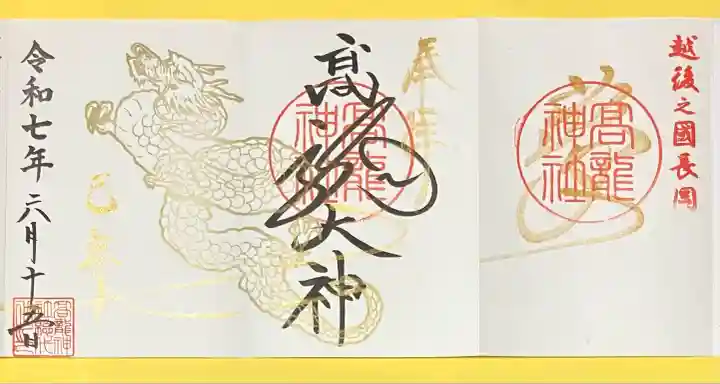 越後之國長岡
高龍
神社
奉拝
高龍大神
高龍
神社
己
令和七年六月十五日